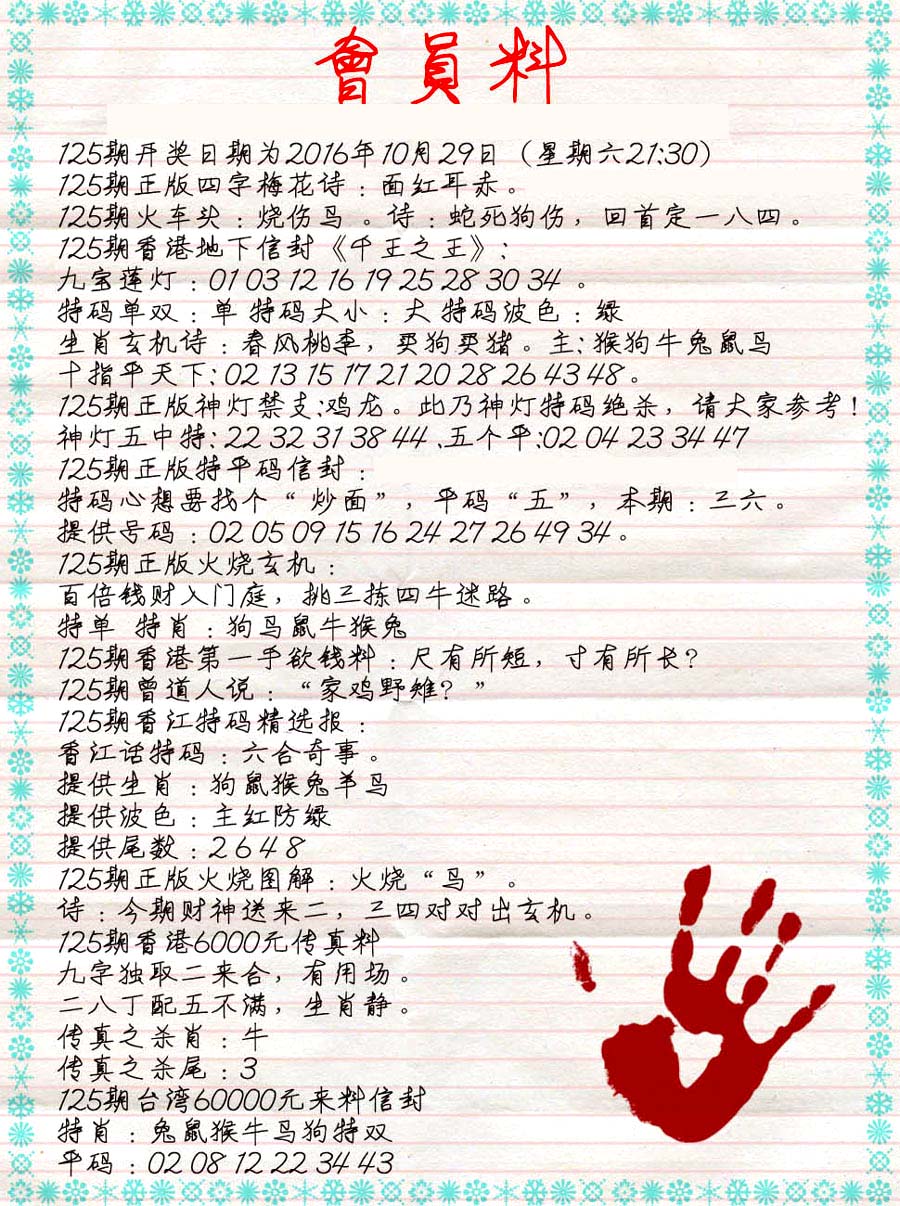 會員料
125期开奖日期为2016年10月29日（星期六21:30）
125期正版四字梅花诗：面红耳赤。
125期火车头：烧伤鸟 。诗：蛇死狗伤，回首定一八四。
125期香港地下信封《千王之王》:
九宝莲灯：01 03 12 16 19 25 28 30 34 。
特码单双：单 特码大小：大 特码波色：绿
生肖玄机诗：春风桃李，买狗买猪。主: 猴狗牛兔鼠鸟
十指平天下: 02 13 15 17 21 20 28 26 43 48。
125期正版神灯禁支:鸡龙。此乃神灯特码绝杀，请大家参考！
神灯五中特: 22 32 31 38 44 、五个平:02 04 23 34 47
125期正版特平码信封：
特码心想要找个“ 炒面”，平码“五”，本期：三六。
提供号码：02 05 09 15 16 24 27 26 49 34。
125期正版火烧玄机：
百倍钱财入门庭，挑三拣四牛迷路。
特单 特肖：狗鸟鼠牛猴兔
125期香港第一手欲钱料：尺有所短，寸有所长？
125期曾道人说：“家鸡野雉？”
125期香江特码精选报：
香江话特码：六合奇事。
提供生肖：狗鼠猴兔羊鸟
提供波色：主红防绿
提供尾数：2 6 4 8
125期正版火烧图解：火烧“鸟”。
诗：今期财神送来二，三四对对出玄机。
125期香港6000元传真料
九字独取二来合，有用场。
二八丁配五不满，生肖静。
传真之杀肖：牛
传真之杀尾：3
125期台湾60000元来料信封
特肖：兔鼠猴牛鸟狗特双
平码：02 08 12 22 34 43